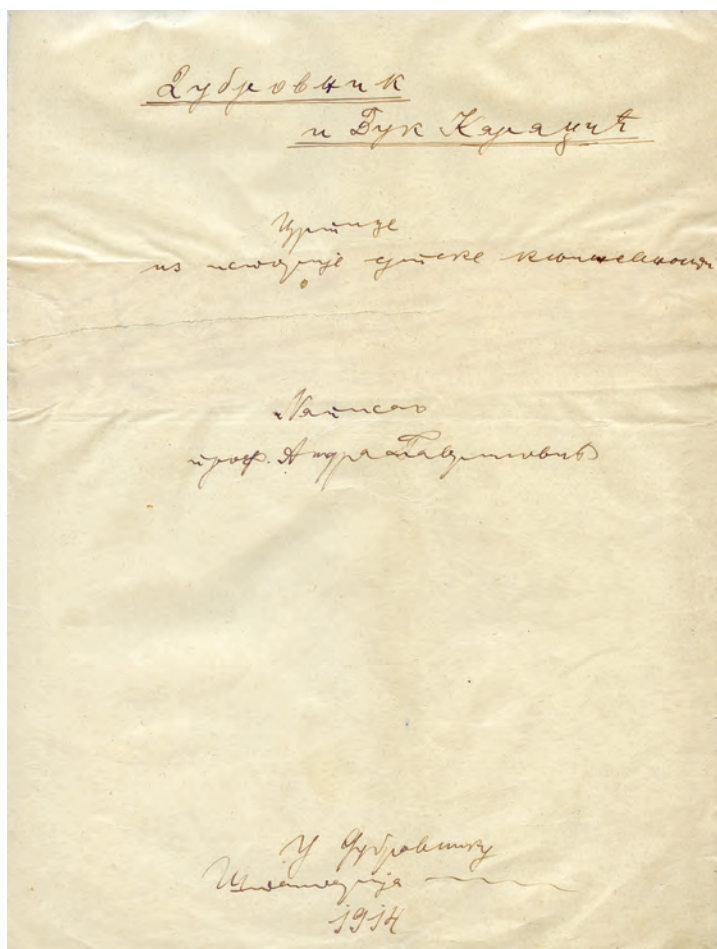 Дубровник
и Вук Караџић
Цртице
из историје српске књижевности
Написао
проф. Андра Гавриловић
У Дубровнику
Штампарија
1914